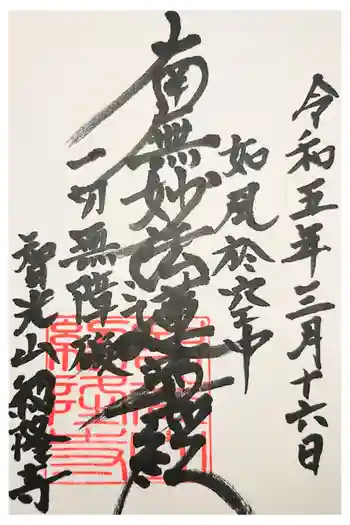 令和五年三月十六日
如風於空中
南無妙法蓮華経
一切無障礙
智光山
隆寺